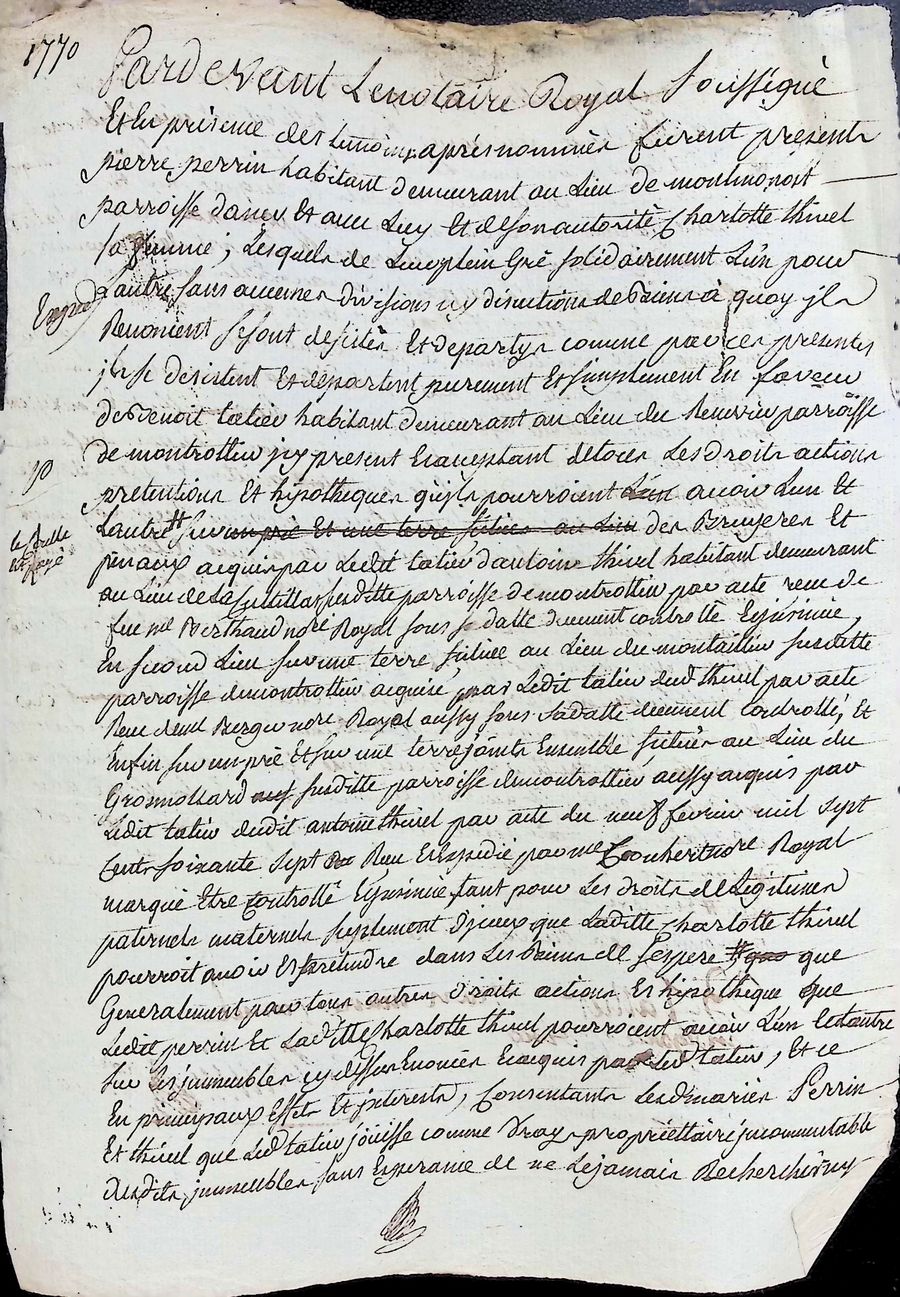 1770
Pardevant Lenotaire Royal Soussigné
Et En présence des temoins aprés nommés furent presents
pierre perrin habitant demeurant au Lieu de montmonost
parroisse dancy Et avec Luy Et de son autorité Charlotte thivel
sa femme ; Lesquels de Leur plein Gré solidairement L'un pour
L'autre sans aucunes divisions ny discutions de Biens à quoy jls
Renoncent se sont desistés Et departys comme par ces presentes
jls se desistent Et departent purement Et simplement En faveur
de Benoit tatiev habitant demeurant au Lieu du parroisse
de montrottier jcy present Et acceptant de tous Les droits actions
pretentions Et hipotheques qu'jls pourroient avoir L'un Et
L'autre sur un pré Et une terre scitués au Lieu des Bruyeres Et
penaux acquis par Ledit tatiev d'antoine thivel habitant demeurant
au Lieu de susditte parroisse de montrottier par acte recu de
feu me Berthaud nore Royal sous sa datte duement controllé Et jnsinué,
En second Lieu sur une terre scituée au Lieu du montaillier susditte
parroisse de montrottier acquise par Ledit tatiev dud thivel par acte
Recu dud nore Royal aussy sous sa datte duement controllé, Et
Enfin sur un pré Et sur une terre joints Ensemble scitués au Lieu du
susditte parroisse de montrottier aussy acquis par
Ledit tatiev dudit antoine thivel par acte du neuf fevrier mil sept
Cents soixante sept Recu Et Expedié par me nore Royal
marqué Etre Controllé Et jnsinué tant pour Les droits de Legitimes
paternels maternels suplement d'jceux que Laditte Charlotte thivel
pourroit avoir Et pretendre dans Les Biens de sespere que
Generalement pour tous autres droits actions Et hipotheque que
Ledit perrin Et Laditte Charlotte thivel pourroient avoir L'un Et L'autre
sur Les jmmeubles cy dessus Enoncés Et acquis par Led tatiev, Et ce
En principaux Effets Et jnterents, Consentants Lesd mariés Perrin
Et thivel que Led tatiev jouisse comme Vray proprietaire jncommutable
desdits jmmeubles sans Esperance de ne Le jamais Rechercher ny